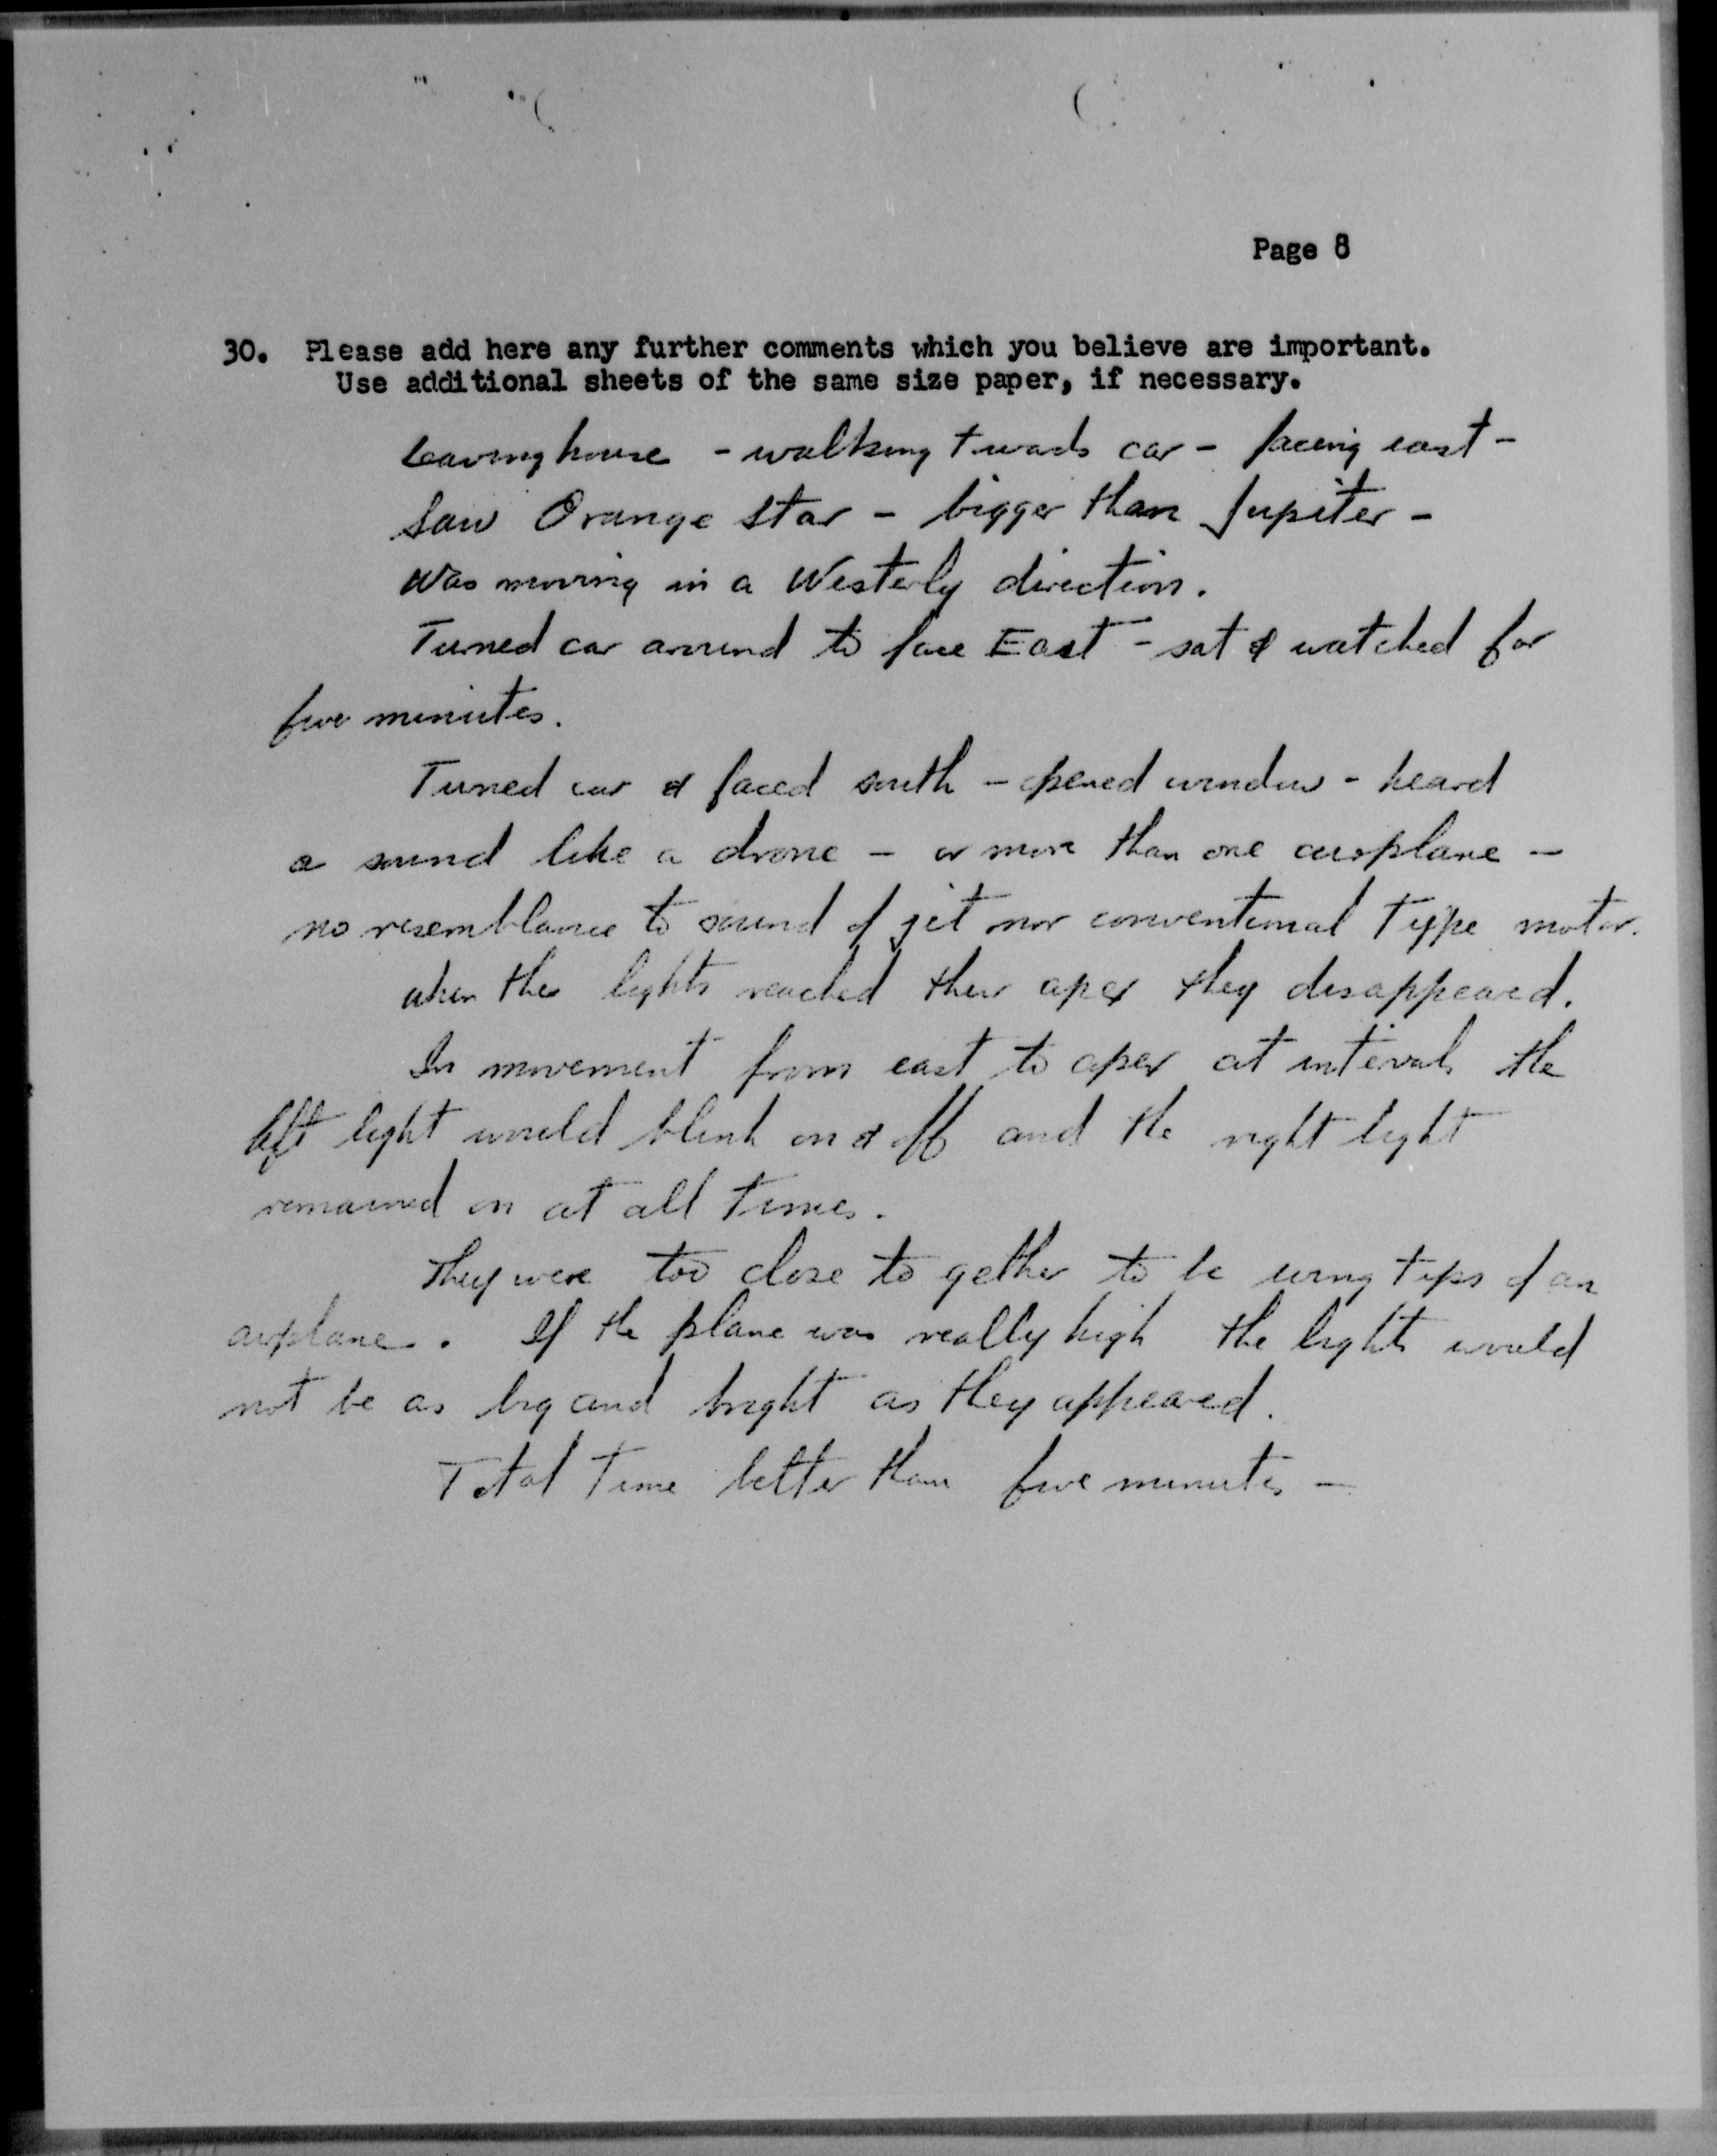 Page 8
30. Please add here any further comments which you believe are important.
Use additional sheets of the same size paper, if necessary.
Leaving house - walking towards car - facing east -
Saw Orange star - bigger than Jupiter -
Was moving in a Westerly direction.
Turned car around to face East - sat & watched for
five minutes.
Turned car & faced south - opened window - heard
a sound like a drone - or more than one airplane -
no resemblance to sound of jet nor conventional type motor.
when the lights reached their apex they disappeared.
In movement from east to apex at intervals the
left light would blink on & off and the right light
remained on at all times.
They were too close to gether to be wing tips of an
airplane. If the plane was really high the lights would
not be as big and bright as they appeared.
Total Time better than five minutes -